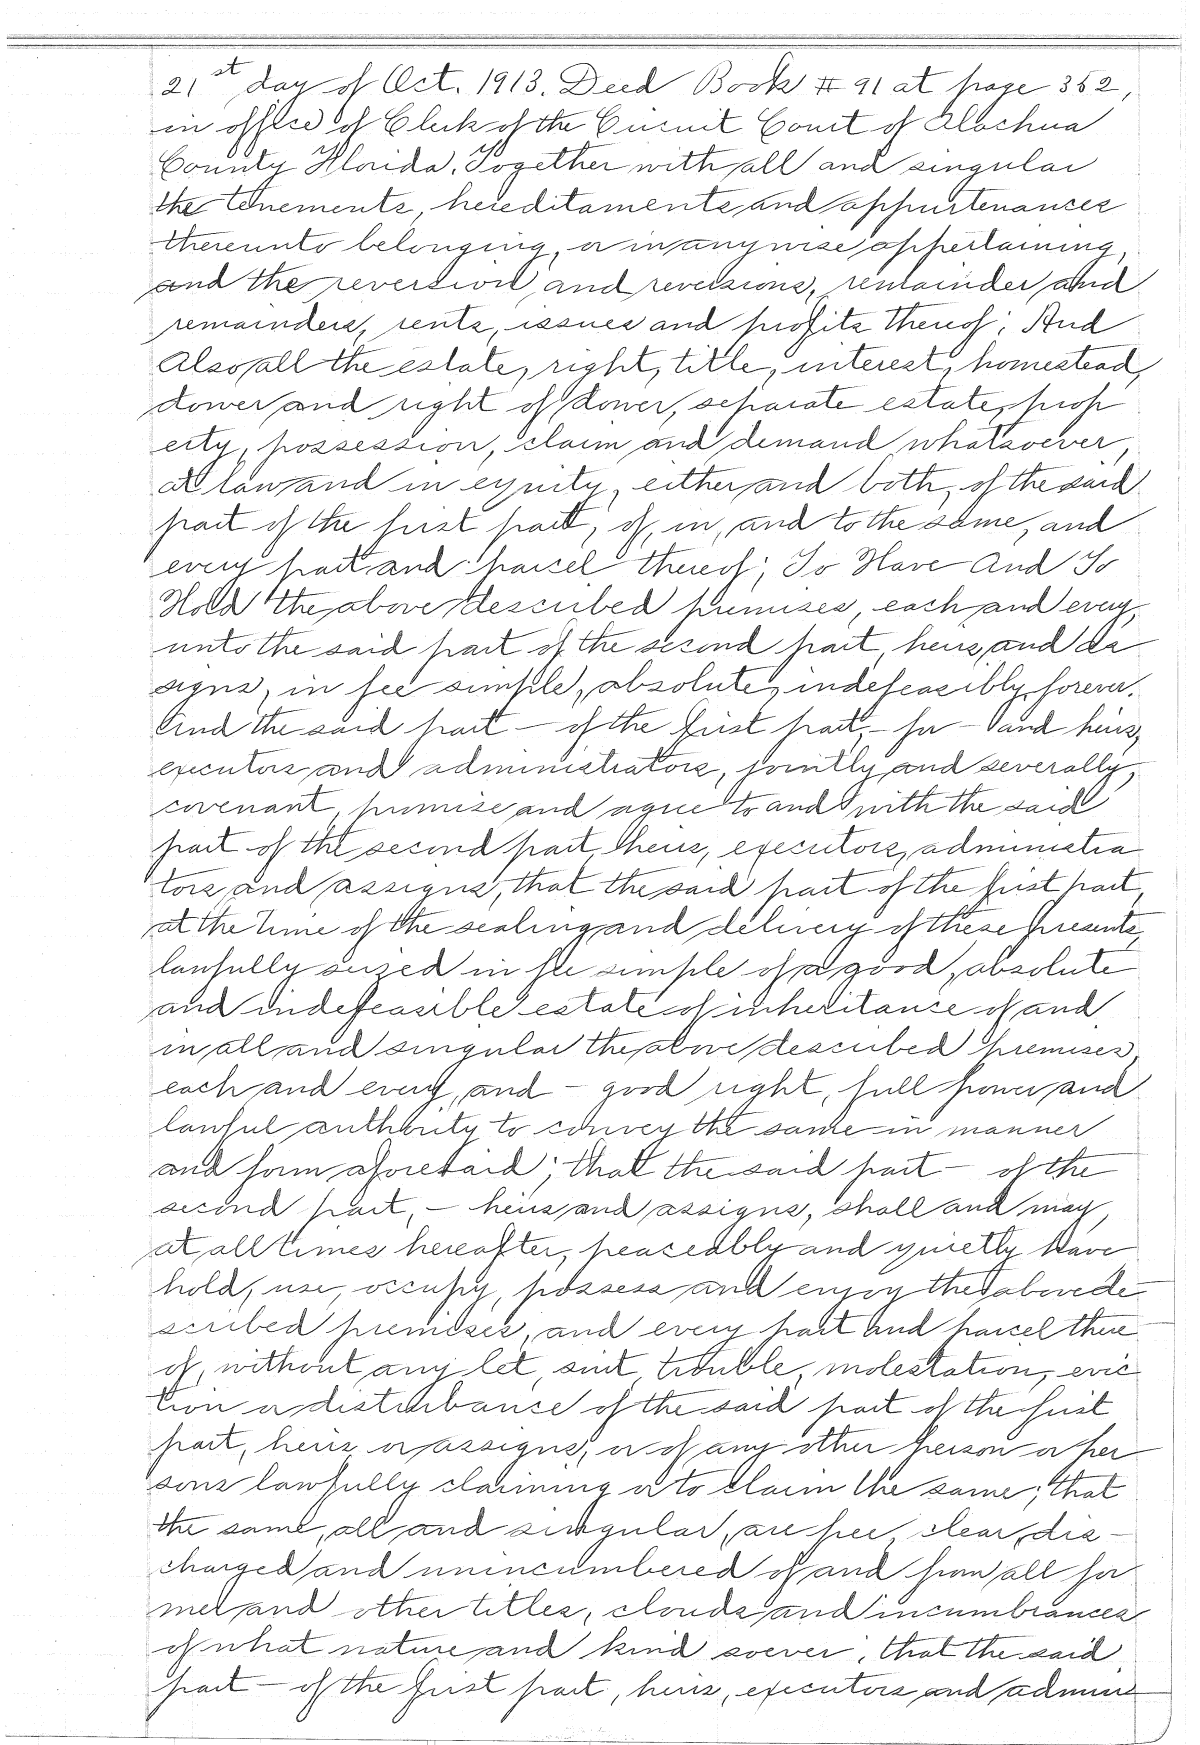 21st day of Oct. 1913. Deed Book # 91 at page 352,
in office of Clerk of the Circuit Court of Alachua
County Florida. Together with all and singular
the tenements, hereditaments and appurtenances
thereunto belonging, or in anywise appertaining,
and the reversion and reversions, remainder and
remainders, rents, issues and profits thereof; And
Also all the estate, right, title, interest, homestead,
dower and right of dower, separate estate, prop
erty, possession, claim and demand whatsoever,
at law and in equity, either and both, of the said
part of the first part, of, in, and to the same, and
every part and parcel thereof; To Have And To
Hold the above described premises, each and every,
unto the said part of the second part, heirs, and as
signs, in fee simple, absolute, indefeasibly, forever.
And the said part – of the first part, – for – and heirs,
executors and administrators, jointly and severally,
covenant, promise and agree to and with the said
part of the second part, heirs, executors, administra
tors, and assigns, that the said part of the first part,
at the time of the sealing and delivery of these presents,
lawfully seized in fee simple of a good, absolute
and indefeasible estate of inheritance of and
in all and singular the above described premises,
each and every, and – good right, full power and
lawful authority to convey the same in manner
and form aforesaid; that the said part – of the
second part, – heirs and assigns, shall and may,
at all times hereafter, peaceably and quietly have
hold, use, occupy, possess and enjoy the above de
scribed premises, and every part and parcel there
of, without any let, suit, trouble, molestation, evic
tion or disturbance of the said part of the first
part, heirs or assigns, or of any other person or per
sons lawfully claiming or to claim the same; that
the same, all and singular, are free, clear, dis–
charged and unincumbered of and from all for
mer and other titles, clouds and incumbrances
of what nature and kind soever; that the said
part – of the first part, heirs, executors and admini